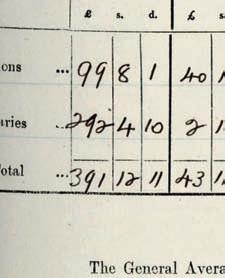 £ s. d. £ s.
ions ... 99 8 1 40
aries .. 292 4 10 2
Total ... 391 12 11 43
The General Avera